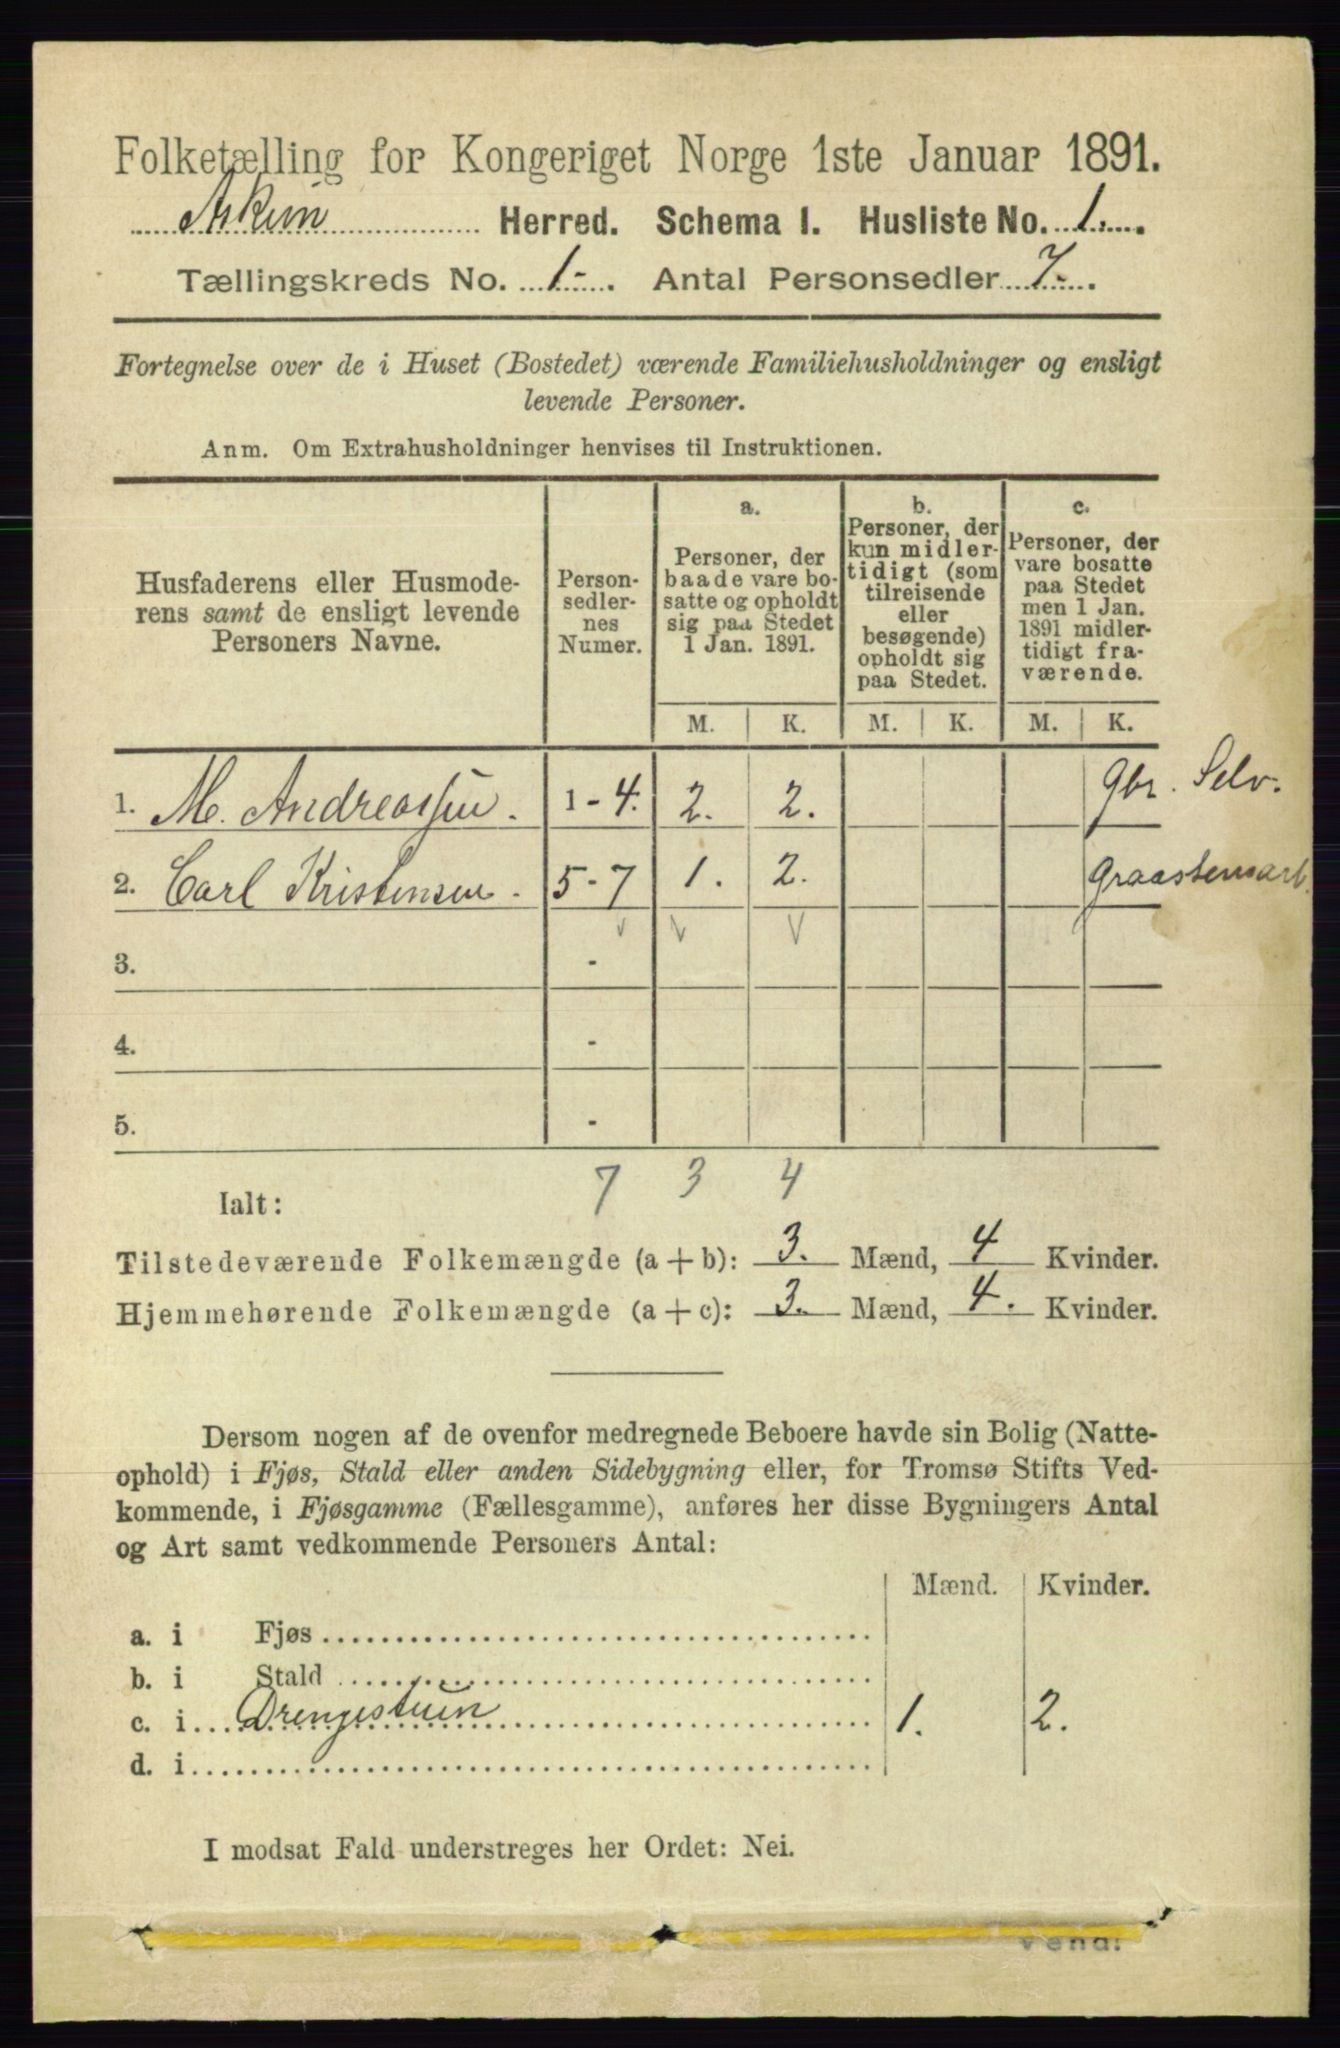 Folketælling for Kongeriget Norge 1ste Januar 1891.
Askim Herred. Schema I. Husliste No. 1.
Tællingskreds No. 1-. Antal Personsedler 7-.
Fortegnelse over de i Huset (Bostedet) værende Familiehusholdninger og ensligt
levende Personer.
Anm. Om Extrahusholdninger henvises til Instruktionen.
Husfaderens eller Husmode-
rens samt de ensligt levende
Personers Navne.
Person-
sedler-
nes
Numer.
a.
Personer, der
baade vare bo-
satte og opholdt
sig paa Stedet
1 Jan. 1891.
b.
Personer, der
kun midler-
tidigt (som
tilreisende
eller
besøgende)
opholdt sig
paa Stedet.
c.
Personer, der
vare bosatte
paa Stedet
men 1 Jan.
1891 midler-
tidigt fra-
værende.
M. K. M. K. M. K.
1. M. Andreassen. 1 - 4. 2. 2. Gbr. Selv.
2. Carl Kristensen. 5 - 7 1. 2. Graastensarb.
3. -
4. -
5. -
Ialt: 7 3 4
Tilstedeværende Folkemængde (a + b): 3. Mænd, 4 Kvinder.
Hjemmehørende Folkemængde (a + c): 3. Mænd, 4. Kvinder.
Dersom nogen af de ovenfor medregnede Beboere havde sin Bolig (Natte-
ophold) i Fjøs, Stald eller anden Sidebygning eller, for Tromsø Stifts Ved-
kommende, i Fjøsgamme (Fællesgamme), anføres her disse Bygningers Antal
og Art samt vedkommende Personers Antal:
Mænd. Kvinder.
a. i Fjøs
b. i Stald
c. i Drengestuen 1. 2.
d. i
I modsat Fald understreges her Ordet: Nei.
Vend!